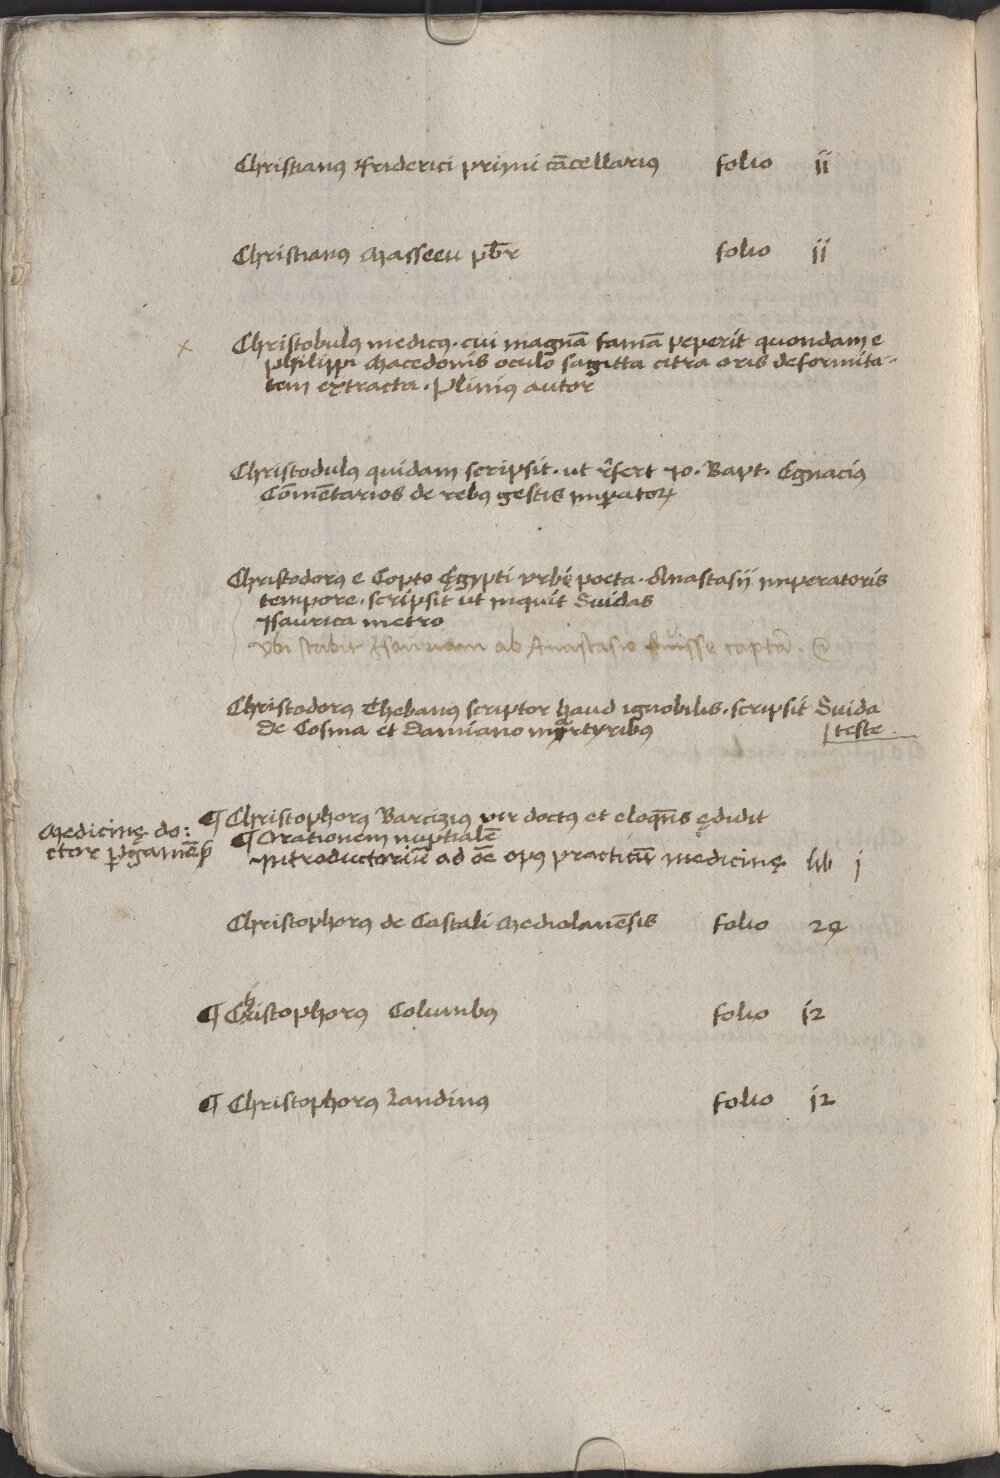 Christianꝰ Friderici primi cãcellariꝰ folio ij
Christianꝰ Masseeu pb̄r folio ij
x Christobulꝰ medicꝰ. cui magnã famã peperit quondam e
philippi Macedonis oculo sagitta citra oris deformita-
tem extracta. Pliniꝰ autor
Christodulꝰ quidam scripsit. ut r̃fert Io. Bapt. Egnaciꝰ
Com̃ẽtarios de rebꝰ gestis imꝑatoꝝ
Christodorꝰ e Copto Ęgypti urbe poeta. Anastasij imperatoris
tempore. scripsit ut inquit Suidas
Isaurica metro
ubi scribit Isauriam ab Anastasio fuisse captã.
Christodorꝰ Thebanꝰ scriptor haud ignobilis. scripsit Suida
teste
de Cosma et Damiano martyribꝰ
¶ Christophorꝰ Barzizius vir doctꝰ et eloq̃ns ędidit
Medicinę do:
ctor
¶ Orationem nuptialẽ
Introductoriũ ad oẽ opꝰ practicũ medicinę lib j
Christophorꝰ de Castali Mediolanẽsis folio 24
¶ Christophorꝰ Columbꝰ folio 12
¶ Christophorꝰ Landinꝰ folio 12